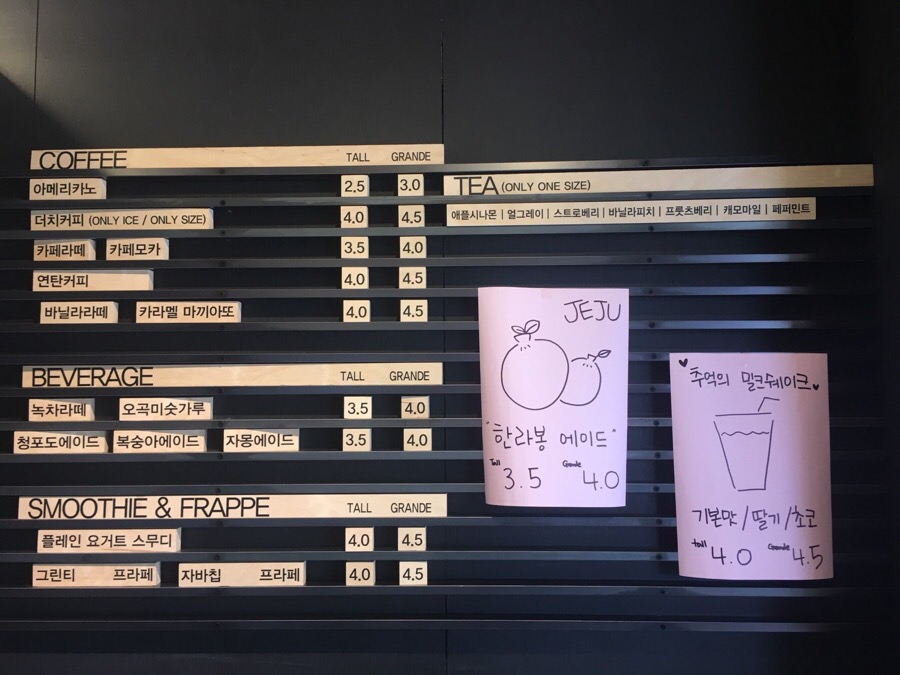 COFFEE TALL GRANDE
아메리카노 2.5 3.0
더치커피 (ONLY ICE / ONLY SIZE) 4.0 4.5
카페라떼 카페모카 3.5 4.0
연탄커피 4.0 4.5
바닐라라떼 카라멜 마끼아또 4.0 4.5
BEVERAGE TALL GRANDE
녹차라떼 오곡미숫가루 3.5 4.0
청포도에이드 복숭아에이드 자몽에이드 3.5 4.0
SMOOTHIE & FRAPPE TALL GRANDE
플레인 요거트 스무디 4.0 4.5
그린티 프라페 자바칩 프라페 4.0 4.5
TEA (ONLY ONE SIZE)
애플시나몬 | 얼그레이 | 스트로베리 | 바닐라피치 | 프룻츠베리 | 캐모마일 | 페퍼민트
JEJU
"한라봉 에이드"
Tall 3.5 Grande 4.0
추억의 밀크쉐이크
기본맛/딸기/초코
tall 4.0 Grande 4.5